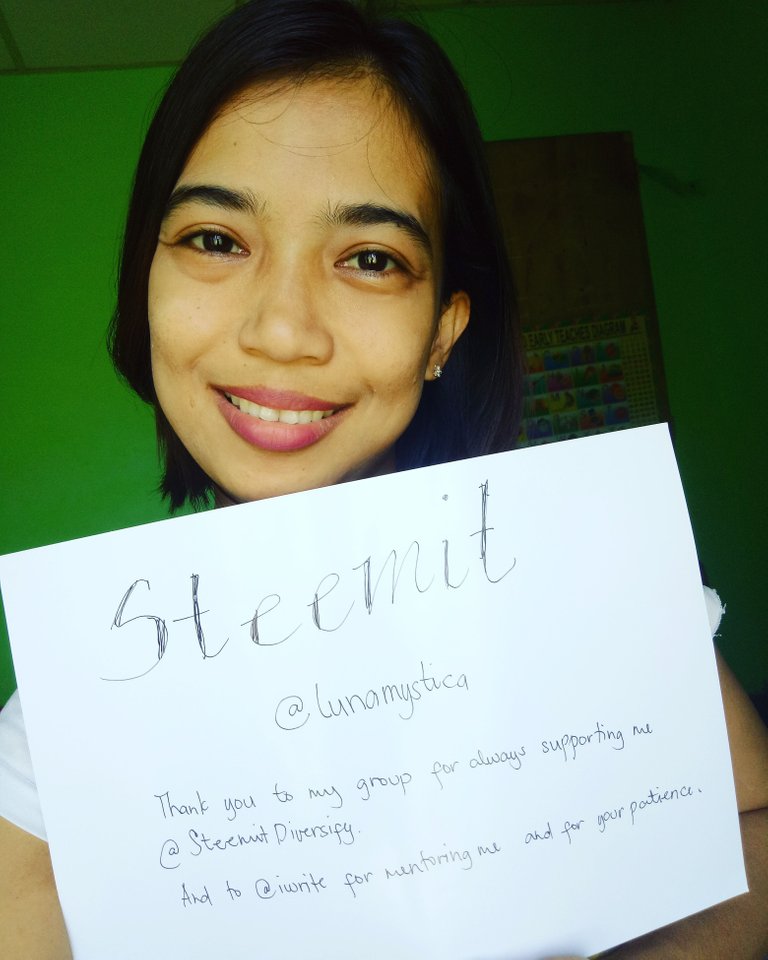 EARLY TEACHES DIAGRAM
Steemit
@lunamystica
Thank you to my group for always supporting me
@SteemitDiversify.
And to @iwrite for mentoring me and for your patience.